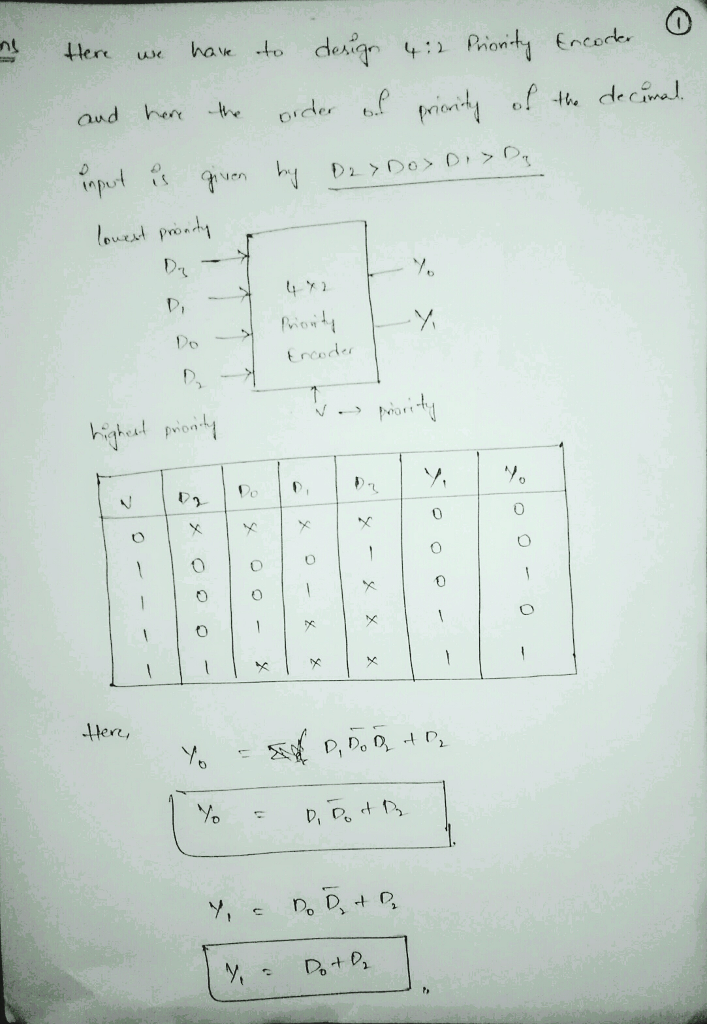 ①
Here we have to design 4:2 Priority Encoder
and here the order of priority of the decimal.
input is given by D2 > D0 > D1 > D3
lowest priority
D3
D1
D0
D2
4×2
Priority
Encoder
Y0
Y1
V → priority
highest priority
V D2 D0 D1 D3 Y1 Y0
0 × × × × 0 0
1 0 0 0 1 0 0
1 0 0 1 × 0 1
1 0 1 × × 1 0
1 1 × × × 1 1
Here,
Y0 = D1 D̄0 D̄2 + D2
Y0 = D1 D̄0 + D2
Y1 = D0 D̄2 + D2
Y1 = D0 + D2